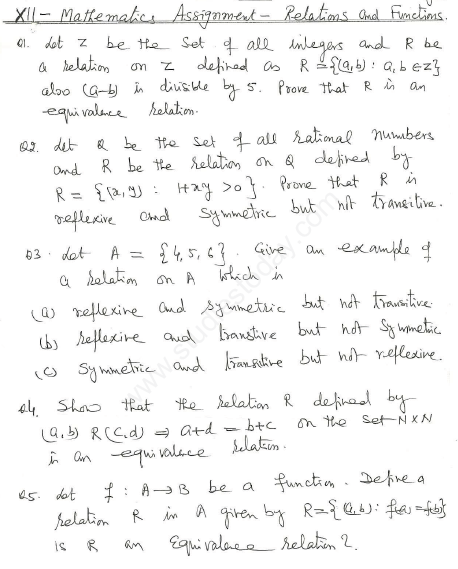 XII - Mathematics Assignment - Relations and Functions.
Q1. Let Z be the set of all integers and R be
a relation on Z defined as R = {(a,b): a, b ∈ Z}
also (a-b) is divisible by 5. Prove that R is an
equivalence relation.
Q2. Let Q be the set of all rational numbers
and R be the relation on Q defined by
R = {(x, y) : 1+xy > 0}. Prove that R is
reflexive and symmetric but not transitive.
Q3. Let A = {4, 5, 6}. Give an example of
a relation on A which is
(a) reflexive and symmetric but not transitive.
(b) reflexive and transitive but not symmetric
(c) Symmetric and transitive but not reflexive.
Q4. Show that the relation R defined by
(a, b) R (c, d) ⇒ a+d = b+c on the set N×N
is an equivalence relation.
Q5. Let f : A → B be a function. Define a
relation R in A given by R = {(a,b): f(a) = f(b)}
Is R an equivalence relation?